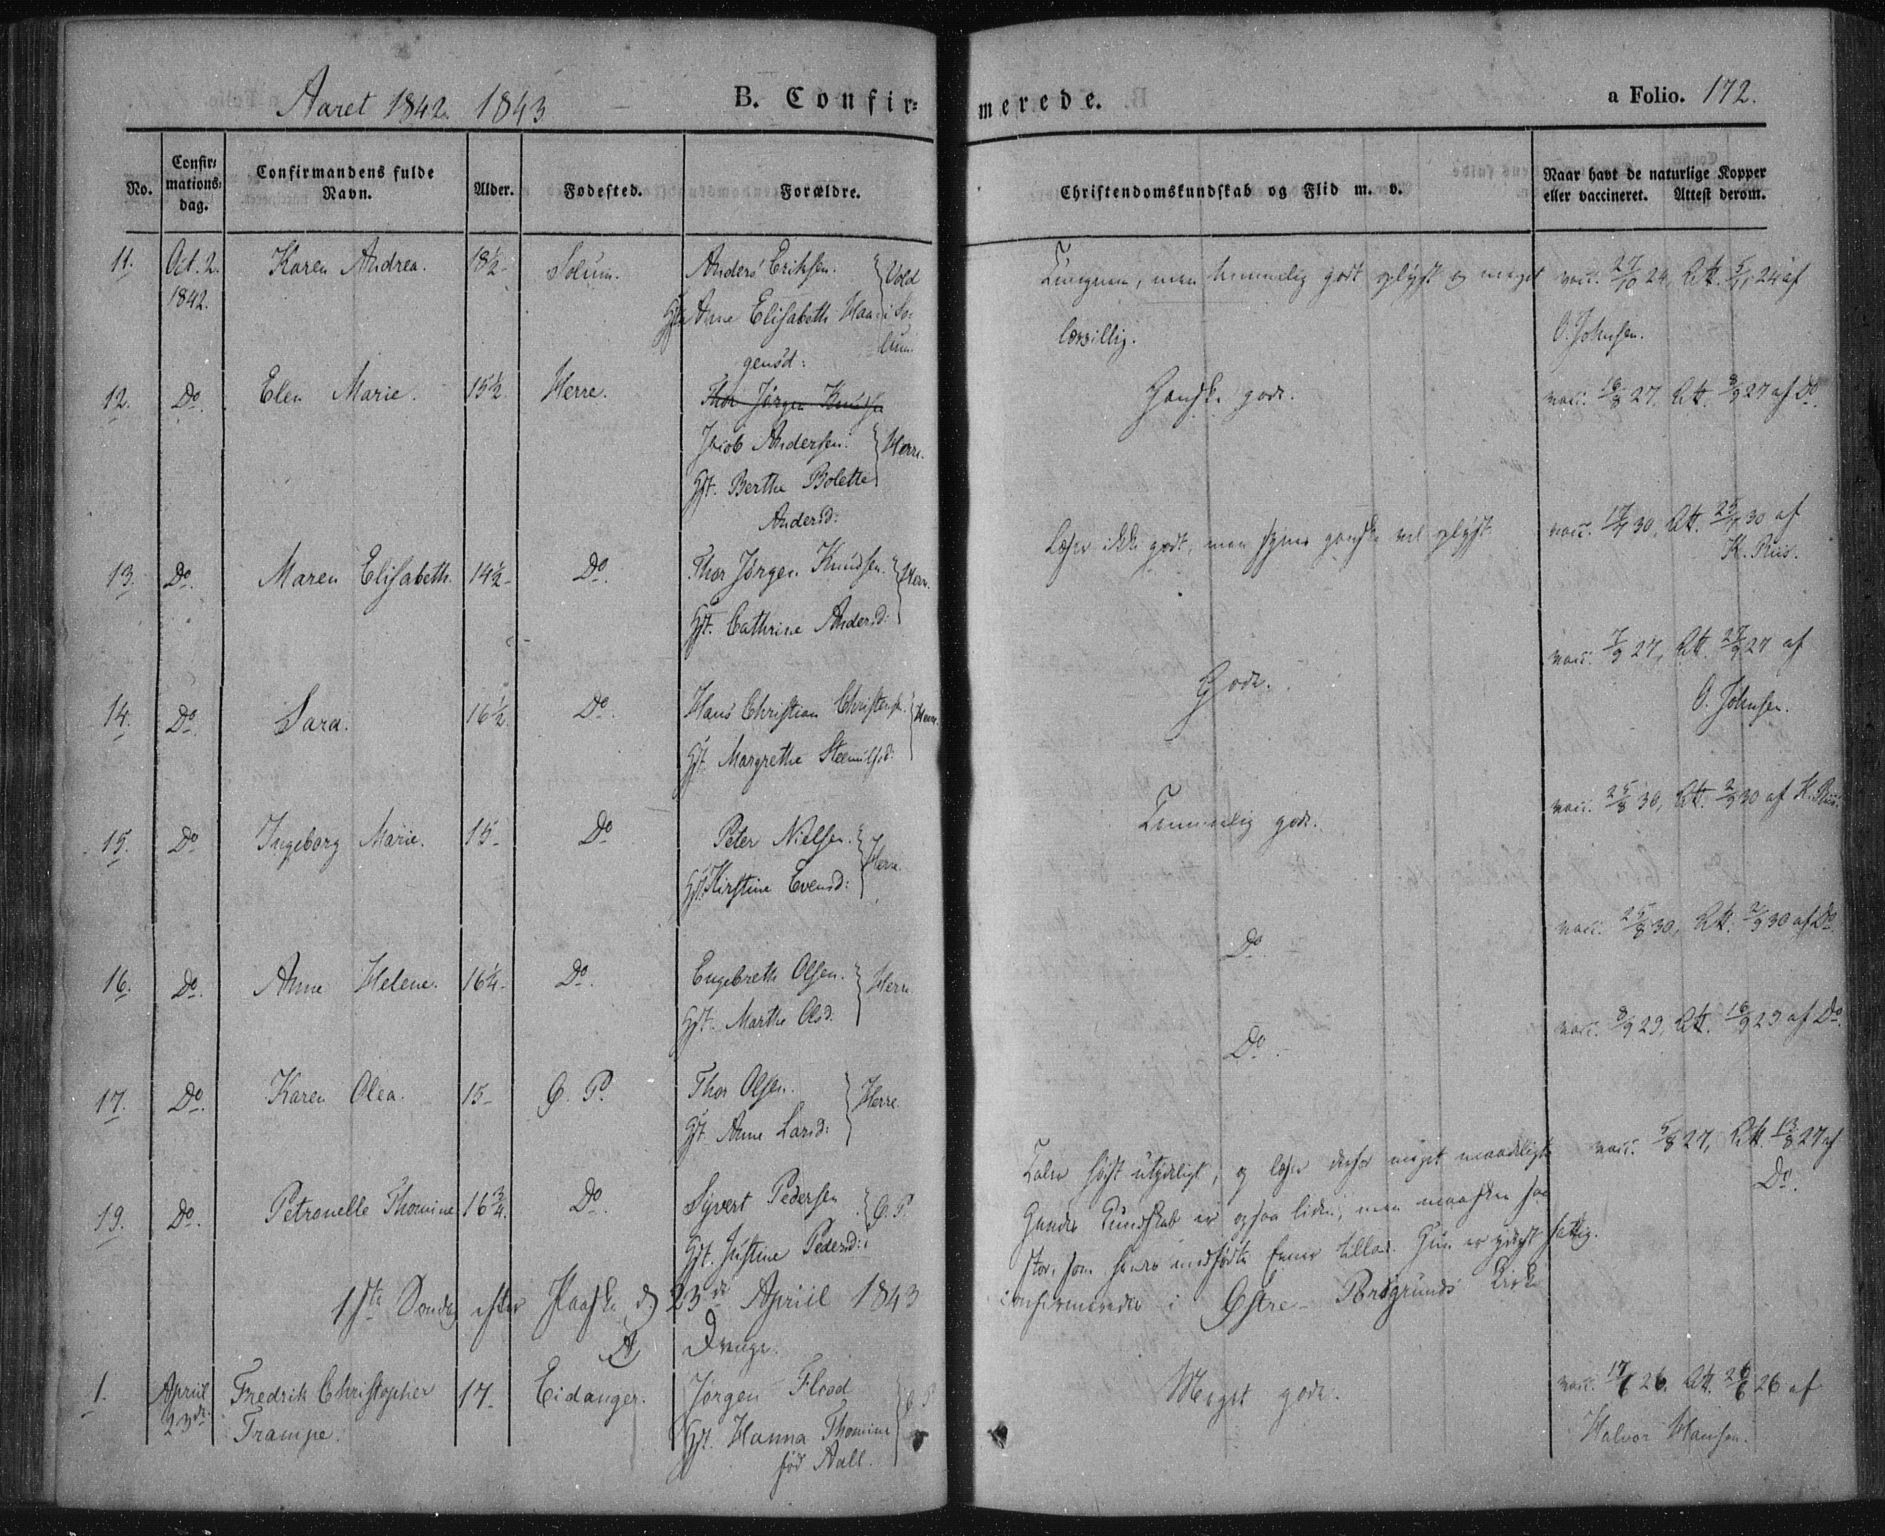 Aaret 1842. 1843 B. Confirmerede. a Folio. 172.
No. Confirmationsdag. Confirmandens fulde Navn. Alder. Fødested. Forældre. Christendomskundskab og Flid m. v. Naar havt de naturlige Kopper eller vaccineret. Attest derom.
11. Oct. 2. Karen Andrea. 18½ Solum. Anders Eriksen. Vold
1842. Anne Elisabeth Haa- i So-
gensd: lum
men temmelig godt oplyst og meget vacc. 27/10 24, Att. 24 af
lærvillig. O. Johnsen.
12. Do. Elen Marie. 15½ Herre. Thor Jørgen Knudsen Ganske godt. vacc. 16/8 27. Att. 27 af Do.
Jacob Andersen. Herre.
Gft. Berthe Bolette
Andersd:
13. Do. Maren Elisabeth. 14½ Do. Thor Jørgen Knudsen. Herre. Læser ikke godt, men synes ganske vel oplyst. vacc. 30, Att. 30 af
Gft. Cathrine Andersd: K. Riis.
14. Do. Sara. 16½ Do. Hans Christian Christens. Herre. Godt. vacc. 7/9 27, Att. 27/9 27 af
Gft. Margrethe O. Johnsen.
15. Do Ingeborg Marie. 15- Do Peter Nielsen. Herre. Temmelig godt. vacc. 25/8 30, Att. 2/9 30 af K. Riis.
Gft. Kirstine Evensd:
16. Do. Anne Helene. 16¼- Do. Engebreth Olsen. Herre Do. vacc. 25/8 30, Att. 2/9 30 af Do
Gft. Marthe Olsd.
17. Do. Karen Olea. 15- G. P. Thor Olsen. Herre. Do. vacc. 29, Att. 16/9 29 af Do.
Gft. Anne Larsd:
19. Do. Petronelle Thomine 16¾. Do. Syvert Pedersen G. P. Taler høist utydeligt, og læser derfor meget maadeligt vacc. 5/8 27, Att. 13/8 27 af
Gft. Justine Pedersd: Hendes Kundskab er ogsaa liden, men maaskee saa Do.
stor, som hendes medfødte Evner tillod. Hun er yderst fattig.
1ste Søndag efter Paaske d 23de April 1843 confirmerede i Østre-Porsgrunds Kirke
Drenge.
1. April Fredrik Christopher 17- Eidanger. Jørgen Flood G. P. Meget godt. vacc. 17/6 26. Att. 26/6 26 af
23de Trampe. Gft. Hanna Thomine Halvor Hansen.
fød Aall.